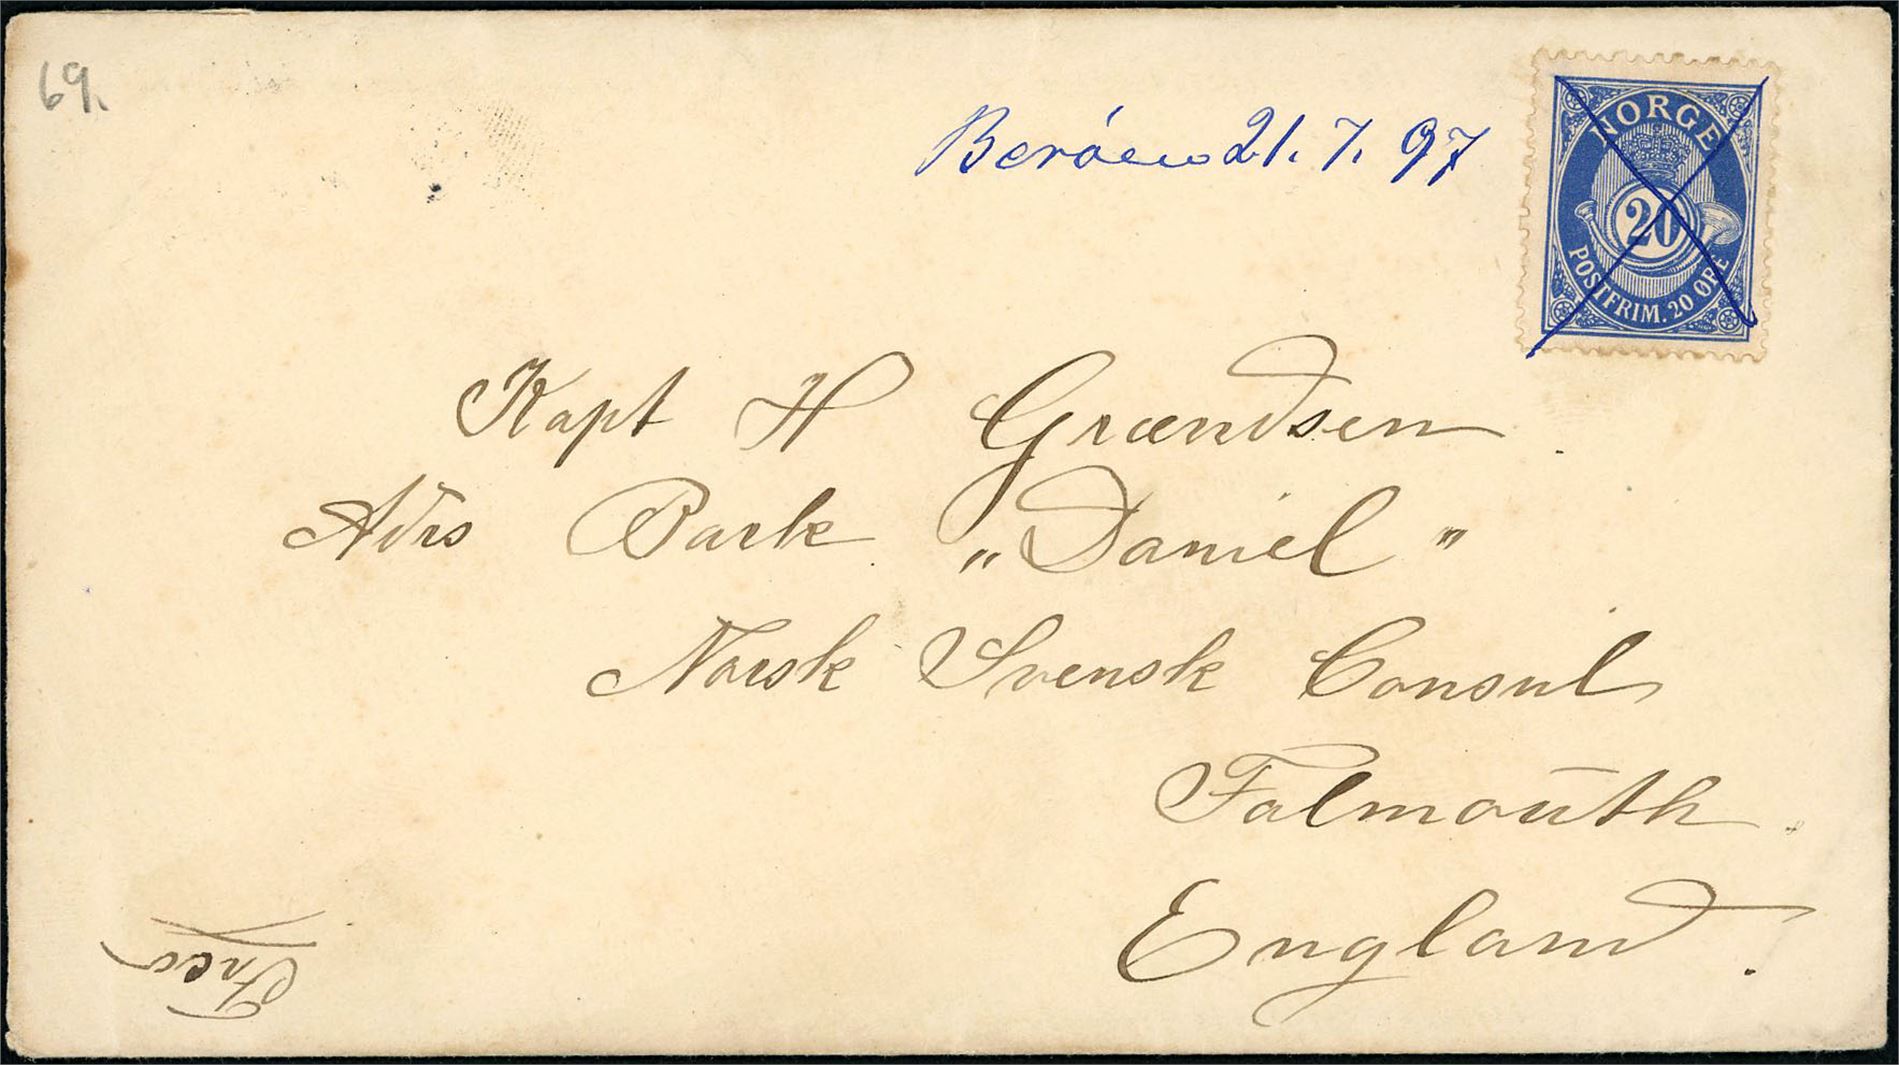 69.
Beröen 21. 7. 97
NORGE
20
POSTFRIM. 20 ØRE
Kapt H Grændsen
Adrs Bark „Daniel"
Norsk Svensk Consul
Falmouth
England.
Fnco